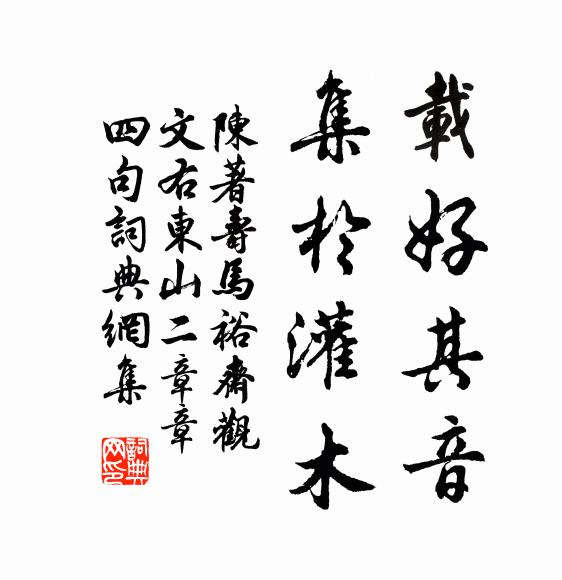 載好其音
集於灌木
陳著壽馬裕齋觀
文右東山二章章
四句詞典網集
詞典
网印